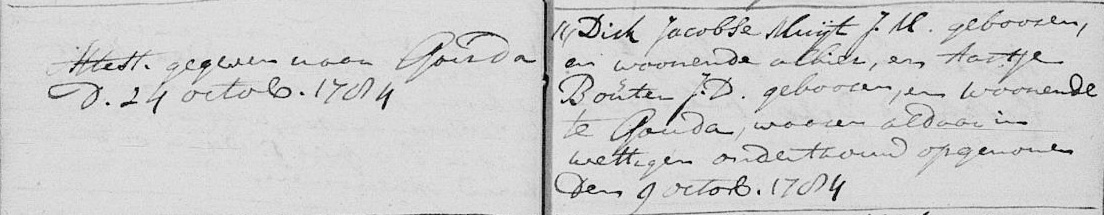 Attest. gegeven naar Gouda
D. 24 octob. 1784
Dirk Jacobse Muijt J.M. geboren,
en woonende alhier, en Aartje
Bouter J.D. geboren, en woonende
te Gouda, waren aldaar in
wettigen ondertrouw opgenomen
Den 9 octob. 1784